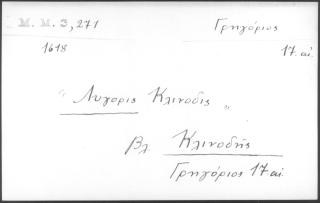 M. M. 3, 271 Γρηγόριος
1618 17. αἰ.
"Λυγορις Κλινοδις"
βλ. Κλινοδῆς
Γρηγόριος 17 αἰ.